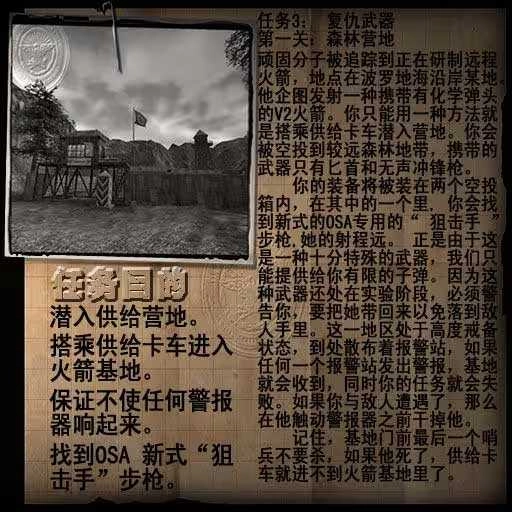 任务3： 复仇武器
第一关：森林营地
顽固分子被追踪到正在研制远程
火箭，地点在波罗地海沿岸某地。
他企图发射一种携带有化学弹头
的V2火箭。你只能用一种方法就
是搭乘供给卡车潜入营地。你会
被空投到较远森林地带，携带的
武器只有匕首和无声冲锋枪。
你的装备将被装在两个空投
箱内，在其中的一个里，你会找
到新式的OSA专用的“ 狙击手 ”
步枪,她的射程远。 正是由于这
是一种十分特殊的武器，我们只
能提供给你有限的子弹。因为这
种武器还处在实验阶段，必须警
告你，要把她带回来以免落到敌
人手里。这一地区处于高度戒备
状态，到处散布着报警站，如果
任何一个报警站发出警报，基地
就会收到，同时你的任务就会失
败。如果你与敌人遭遇了，那么
在他触动警报器之前干掉他。
记住，基地门前最后一个哨
兵不要杀，如果他死了，供给卡
车就进不到火箭基地里了。
任务目的
潜入供给营地。
搭乘供给卡车进入
火箭基地。
保证不使任何警报
器响起来。
找到OSA 新式“狙
击手”步枪。